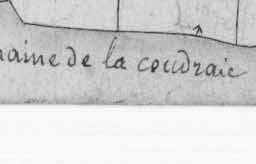 naine de la coudraie